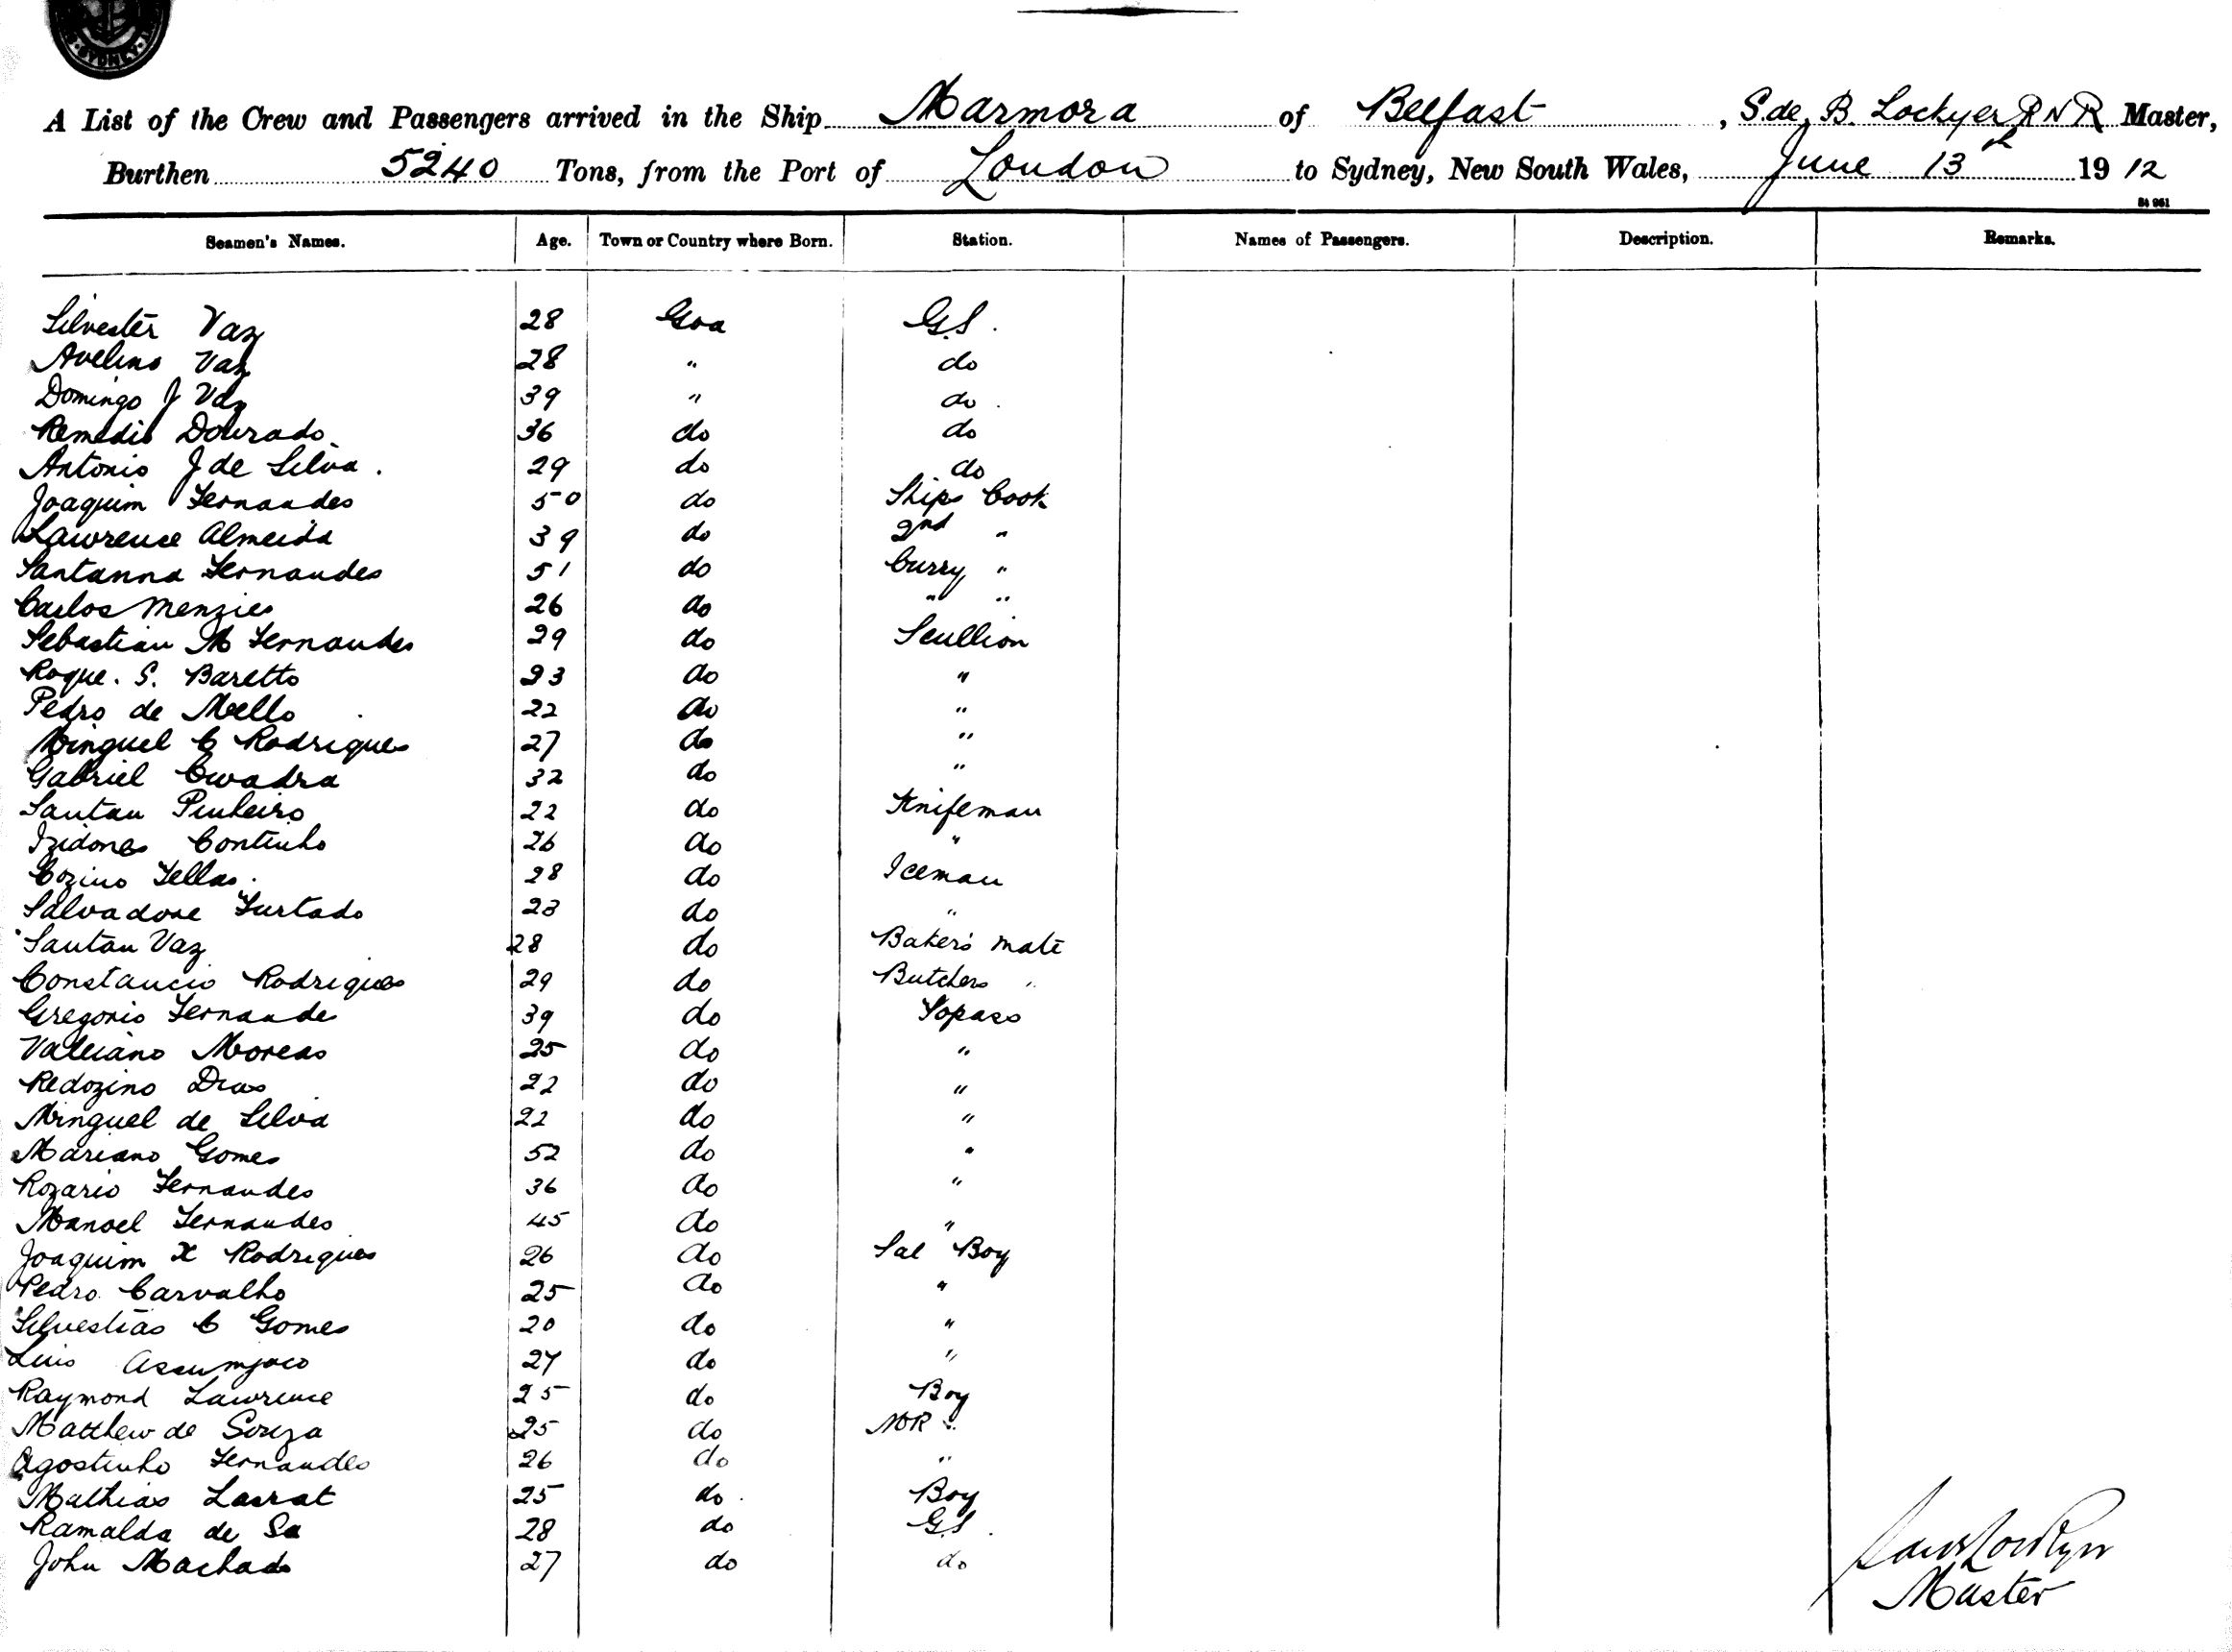 SYDNEY
A List of the Crew and Passengers arrived in the Ship Marmora of Belfast, S. de B. Lockyer RNR Master,
Burthen 5240 Tons, from the Port of London to Sydney, New South Wales, June 13 1912
Seamen's Names. Age. Town or Country where Born. Station. Names of Passengers. Description. Remarks.
Silvester Vaz 28 Goa G.S.
Avelino Vaz 28 " do
Domingo J Vaz 39 " do
Remedio Dourado 36 do do
Antonio J de Silva 29 do do
Joaquim Fernandes 50 do Ships Cook
Lawrence Almeida 39 do 2nd "
Santanna Fernandes 51 do Curry "
Carlos Menzies 26 do " "
Sebastian M Fernandes 29 do Scullion
Roque. S. Baretto 23 do "
Pedro de Mello 22 do "
Minguel C Rodrigues 27 do "
Gabriel Cwadra 32 do "
Santan Pinheiro 22 do Knifeman
Izidones Continho 26 do "
Cozino Tellas 28 do Iceman
Salvadore Furtado 23 do "
Santan Vaz 28 do Baker's mate
Constancio Rodrigues 29 do Butchers "
Gregorio Fernande 39 do Topass
Valeiano Moreas 25 do "
Redozino Dias 22 do "
Minguel de Silva 22 do "
Mariano Gomes 52 do "
Rozario Fernandes 36 do "
Manoel Fernandes 45 do "
Joaquim X Rodrigues 26 do Sal Boy
Pedro Carvalho 25 do "
Silvestias C Gomes 20 do "
Luis Assumjaco 27 do "
Raymond Lawrence 25 do Boy
Matthew de Souza 25 do MR "
Agostinho Fernandes 26 do "
Mathias Lasrat 25 do Boy
Ramalda de Sa 28 do G.S.
John Machado 27 do do
Master